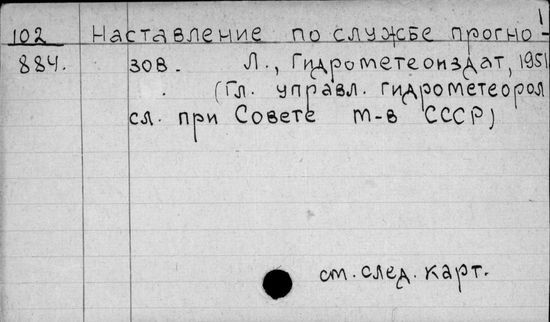 1
102 Наставление по службе прогно-
884. зов. Л., Гидрометеоиздат, 1951
(Гл. управл. гидрометеорол
сл. при Совете м-в СССР)
см. след. карт.